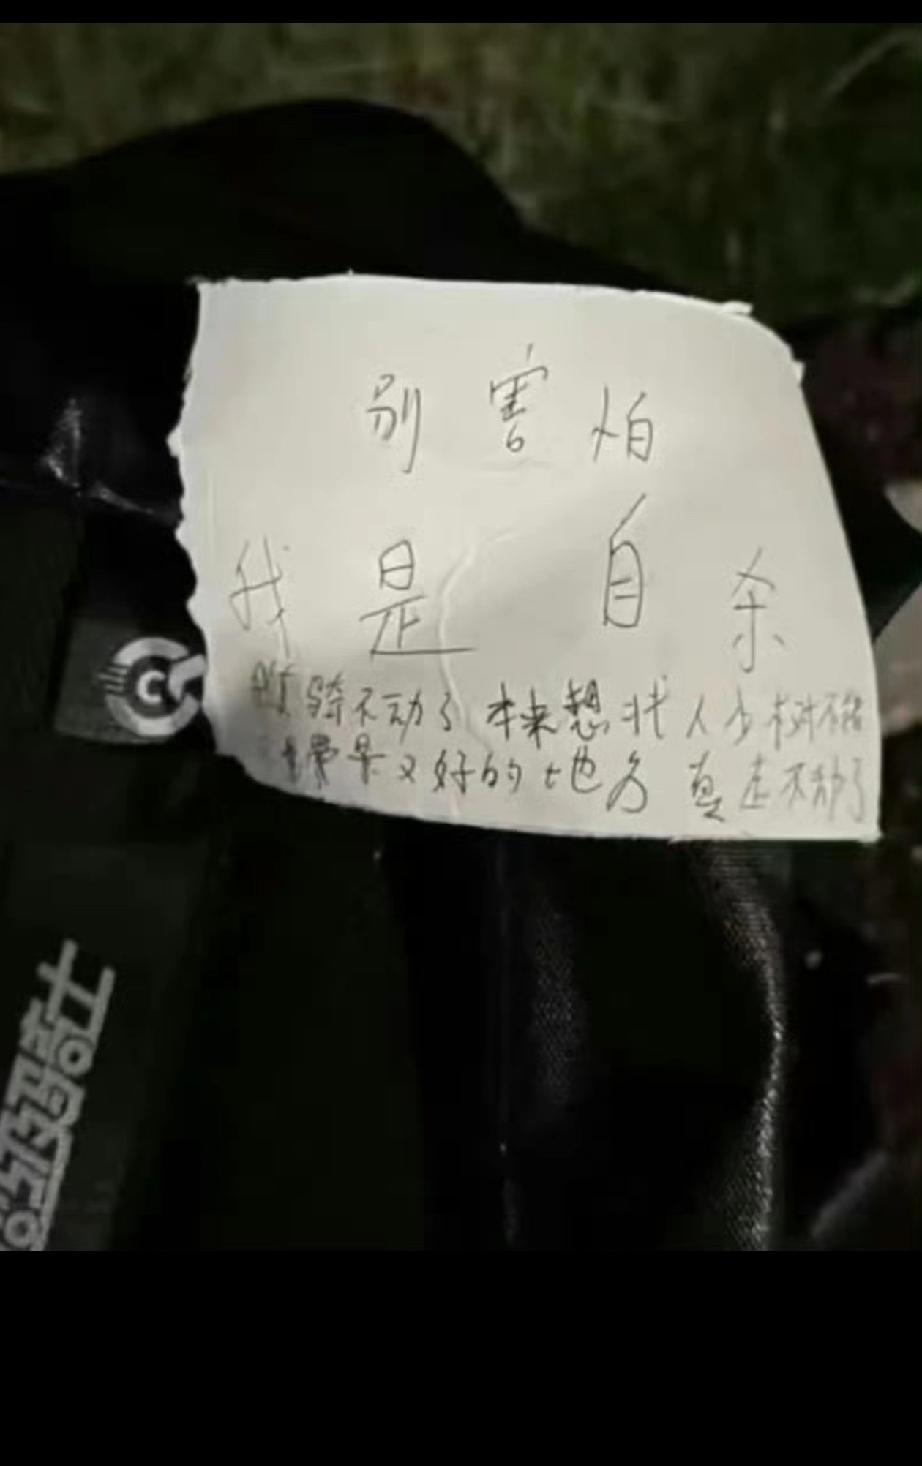 别害怕
我是 自杀
骑不动了 本来想找人少树不错
景又好的地方 真走不动了